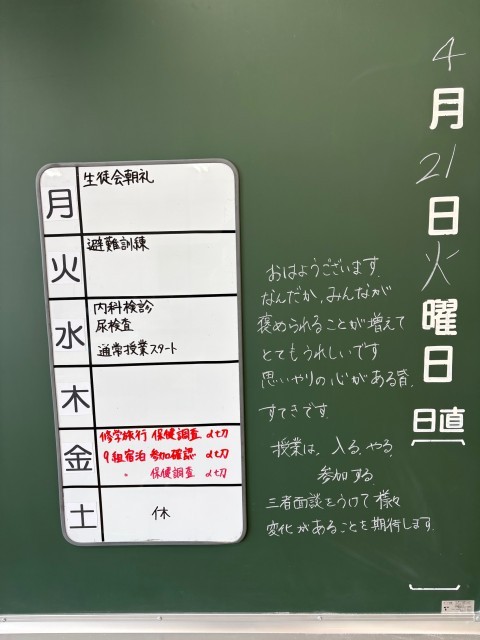 4月21日火曜日
日直
月 生徒会朝礼
火 避難訓練
水 内科検診
尿検査
通常授業スタート
木
金 修学旅行 保健調査 〆切
9組宿泊 参加確認 〆切
〃 保健調査 〆切
土 休
おはようございます。
なんだか、みんなが
褒められることが増えて
とてもうれしいです
思いやりの心がある皆、
すてきです。
授業は、入る、やる、
参加する
三者面談をうけて様々
変化があることを期待します。